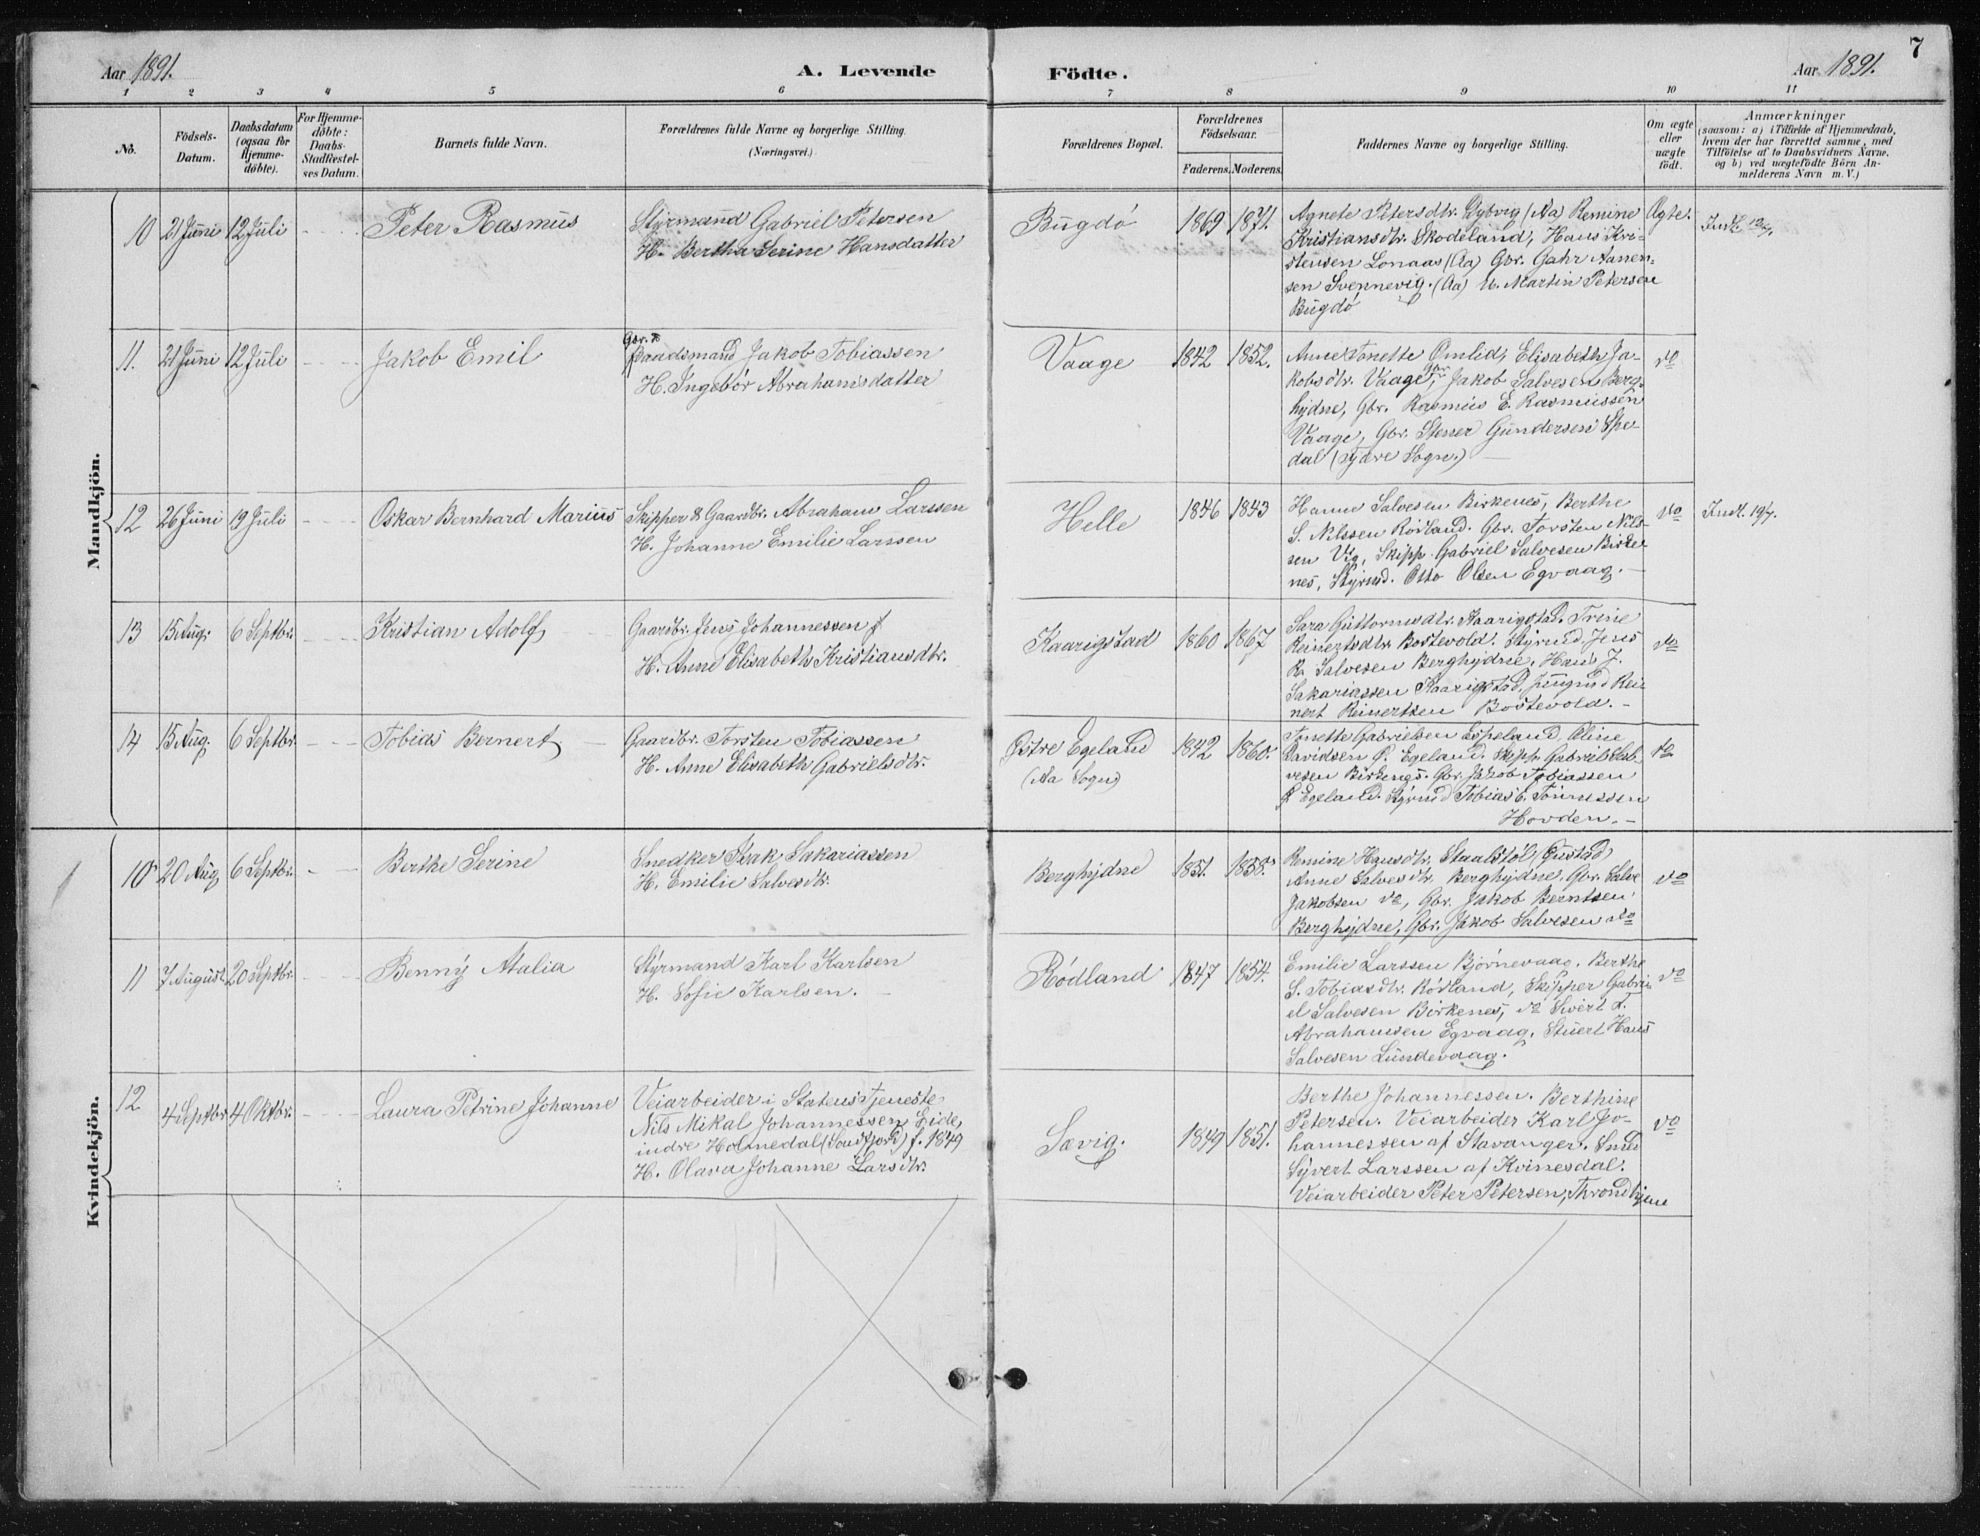 7
Aar 1891.
A. Levende
Födte.
Aar 1891.
1 2 3 4 5 6 7 8 9 10 11
No.
Födsels-
Datum.
Daabsdatum
(ogsaa for
Hjemme-
döbte).
For Hjemme-
döbte:
Daabs-
Stadfæstel-
ses Datum.
Barnets fulde Navn.
Forældrenes fulde Navne og borgerlige Stilling.
(Næringsvei.)
Forældrenes Bopæl.
Forældrenes
Födselsaar.
Faderens. Moderens.
Faddernes Navne og borgerlige Stilling.
Om ægte
eller
uægte
födt.
Anmærkninger
(saasom: a) i Tilfælde af Hjemmedaab,
hvem der har forrettet samme, med
Tilföielse af to Daabsvidners Navne,
og b) ved uægtefödte Börn An-
melderens Navn m. V.)
Mandkjön.
10 21 Juni 12 Juli
Peter Rasmus
Styrmand Gabriel Petersen
H. Bertha Serine Hansdatter
Bugdö
1869 1871.
Agnete Petersdtr. Dybvig (Aa) Remine
Kristiansdtr. Skodeland, Hans Kri-
stensen Lonaas (Aa) Gbr. Gahr Aanen-
sen Svennevig. (Aa) U. Martin Petersen
Bugdö
Ægte.
Indl. 12/7.
11. 21 Juni 12 Juli
Jakob Emil
Gbr. &
Baadsmand Jakob Tobiassen
H. Ingebör Abrahamsdatter
Vaage
1842 1852.
Anne Tonette Omlid, Elisabeth Ja-
kobsdtr. Vaage, Gbr. Jakob Salvesen Berg-
hydne, Gbr. Rasmus E. Rasmussen
Vaage, Gbr. Stener Gundersen Spe-
dal (sydre Sogn.)
do
12 26 Juni 19 Juli
Oskar Bernhard Marius
Skipper & Gaardbr. Abraham Larssen
H. Johanne Emilie Larssen
Helle
1846 1843
Hanne Salvesen Birkenes, Berthe
S. Nilssen Rödland. Gbr. Torsten Nils-
sen Vig, Skipp. Gabriel Salvesen Birke-
nes, Styrmd. Otto Olsen Egvaag. -
do
Indl. 19/7.
13 15 Aug. 6 Septbr.
Kristian Adolf
Gaardbr. Jens Johannessen
H. Anne Elisabeth Kristiansdtr.
Kaarigstad
1860 1867
Sara Guttormsdtr. Kaarigstad. Trine
Reinertsdtr. Bostevold. Styrmd. Jens
R. Salvesen Berghydne. Hans J.
Sakariassen Kaarigstad. Jungmd Rei-
nert Reinertsen Bostevold. -
do
14 15 Aug. 6 Septbr.
Tobias Bernert
Gaardbr. Torsten Tobiassen
H. Anne Elisabeth Gabrielsdtr.
Østre Egeland
(Aa Sogn)
1842 1860.
Tonette Gabrielsen Espeland. Oline
Davidsen Ø. Egeland. Skipp. Gabriel Sal-
vesen Birkenes. Gbr. Jakob Tobiassen
Ø. Egeland. Styrmd Tobias C. Tönnessen
Hovden. -
do
Kvindekjön.
10 20 Aug 6 Septbr.
Berthe Serine
Snedker Isak Sakariassen
H. Emilie Salvesdtr.
Berghydne
1851. 1858.
Remine Hansdtr. Staalstöl (Gustad)
Anne Salvesdtr. Berghydne. Gbr. Salve
Jakobsen do, Gbr. Jakob Berntsen
Berghydne, Gbr. Jakob Salvesen do
do
11 7 August 20 Septbr.
Benny Atalia
Styrmand Karl Karlsen
H. Sofie Karlsen. -
Rödland
1847 1854.
Emilie Larssen Bjørnevaag. Berthe
S. Tobiasdtr. Rödland, Skipper Gabri-
el Salvesen Birkenes, do Sivert T.
Abrahamsen Egvaag. Stuert Hans
Salvesen Lundevaag.
do
12 4 Septbr. 4 Oktbr.
Laura Petrine Johanne
Veiarbeider i Statens Tjeneste
Nils Mikal Johannessen Eide,
indre Holmedal (Söndfjord) f. 1849
H. Olava Johanne Larsdtr.
Sævig.
1849 1851.
Berthe Johannessen. Berthine
Petersen. Veiarbeider Karl Jo-
hannessen af Stavanger. Smed
Syvert Larssen af Kvinesdal.
Veiarbeider Peter Petersen, Throndhjem
do